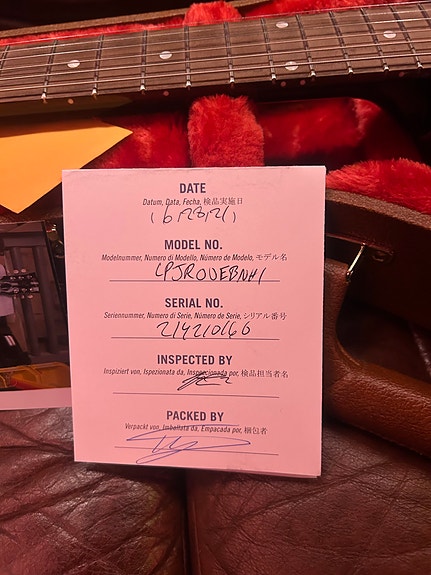 DATE
Datum, Data, Fecha, 検品実施日
6/28/21
MODEL NO.
Modelnummer, Numero di Modello, Número de Modelo, モデル名
LPJR0VEBNH1
SERIAL NO.
Seriennummer, Numero di Serie, Número de Serie, シリアル番号
214210166
INSPECTED BY
Inspiziert von, Ispezionata da, Inspeccionada por, 検品担当者名
PACKED BY
Verpackt von, Imballata da, Empacada por, 梱包者